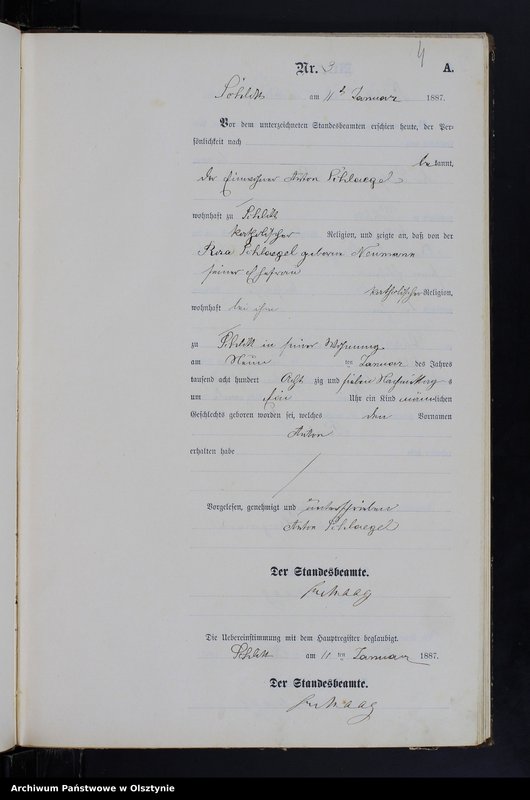 4
Nr. 3 A.
Schlitt am 11 t Januar 1887.
Vor dem unterzeichneten Standesbeamten erschien heute, der Per-
sönlichkeit nach
be kannt,
der Einwohner Anton Schlaegel
wohnhaft zu Schlitt
katholischer Religion, und zeigte an, daß von der
Rosa Schlaegel geborene Neumann
seiner Ehefrau
katholischer Religion,
wohnhaft bei ihm
zu Schlitt in seiner Wohnung
am Neun ten Januar des Jahres
tausend acht hundert Acht zig und sieben Nachmittags
um Uhr ein Kind männlichen
Geschlechts geboren worden sei, welches den Vornamen
Anton
erhalten habe
Vorgelesen, genehmigt und unterschrieben
Anton Schlaegel
Der Standesbeamte.
Die Uebereinstimmung mit dem Hauptregister beglaubigt.
Schlitt am 11 ten Januar 1887.
Der Standesbeamte.
Archiwum Państwowe w Olsztynie